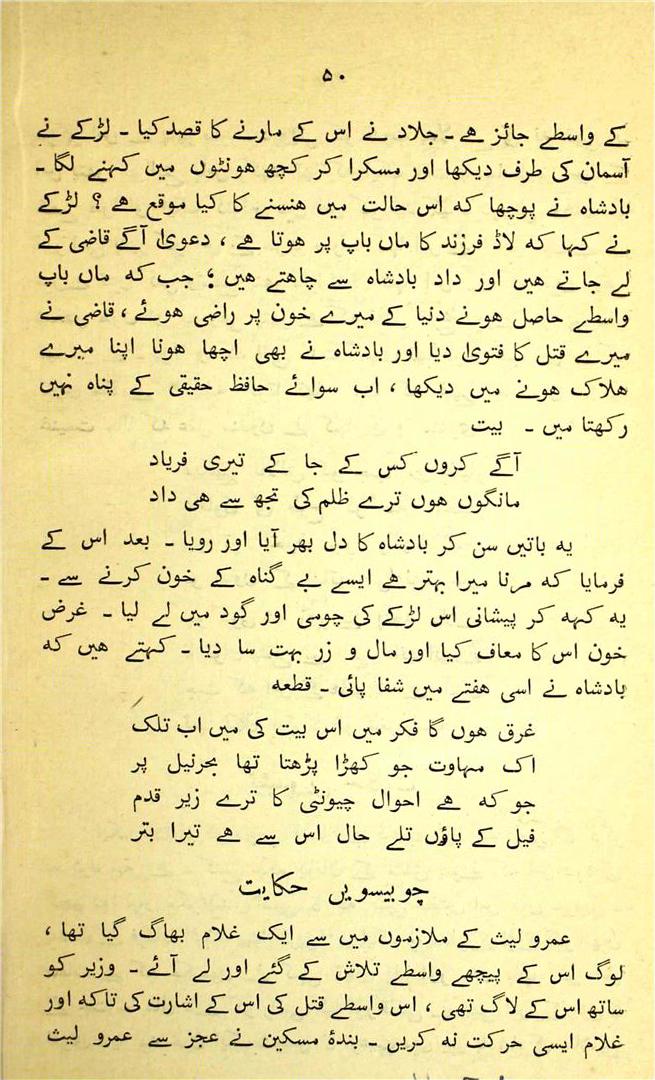 ۵۰
کے واسطے جائز ہے ۔ جلاد نے اس کے مارنے کا قصد کیا ۔ لڑکے نے
آسمان کی طرف دیکھا اور مسکرا کر کچھ ہونٹوں میں کہنے لگا ۔
بادشاہ نے پوچھا کہ اس حالت میں ہنسنے کا کیا موقع ہے ؟ لڑکے
نے کہا کہ لاڈ فرزند کا ماں باپ پر ہوتا ہے ، دعویٰ آگے قاضی کے
لے جاتے ہیں اور داد بادشاہ سے چاہتے ہیں ؛ جب کہ ماں باپ
واسطے حاصل ہونے دنیا کے میرے خون پر راضی ہوئے ، قاضی نے
میرے قتل کا فتویٰ دیا اور بادشاہ نے بھی اچھا ہونا اپنا میرے
ہلاک ہونے میں دیکھا ، اب سوائے حافظ حقیقی کے پناہ نہیں
رکھتا میں ۔ بیت
آگے کروں کس کے جا کے تیری فریاد
مانگوں ہوں ترے ظلم کی تجھ سے ہی داد
یہ باتیں سن کر بادشاہ کا دل بھر آیا اور رویا ۔ بعد اس کے
فرمایا کہ مرنا میرا بہتر ہے ایسے بے گناہ کے خون کرنے سے ۔
یہ کہہ کر پیشانی اس لڑکے کی چومی اور گود میں لے لیا ۔ غرض
خون اس کا معاف کیا اور مال و زر بہت سا دیا ۔ کہتے ہیں کہ
بادشاہ نے اسی ہفتے میں شفا پائی ۔ قطعہ
غرق ہوں گا فکر میں اس بیت کی میں اب تلک
اک مہاوت جو کھڑا پڑھتا تھا بحرنیل پر
جو کہ ہے احوال چیونٹی کا ترے زیر قدم
فیل کے پاؤں تلے حال اس سے ہے تیرا بتر
چوبیسویں حکایت
عمرو لیث کے ملازموں میں سے ایک غلام بھاگ گیا تھا ،
لوگ اس کے پیچھے واسطے تلاش کے گئے اور لے آئے ۔ وزیر کو
ساتھ اس کے لاگ تھی ، اس واسطے قتل کی اس کے اشارت کی تاکہ اور
غلام ایسی حرکت نہ کریں ۔ بندۂ مسکین نے عجز سے عمرو لیث